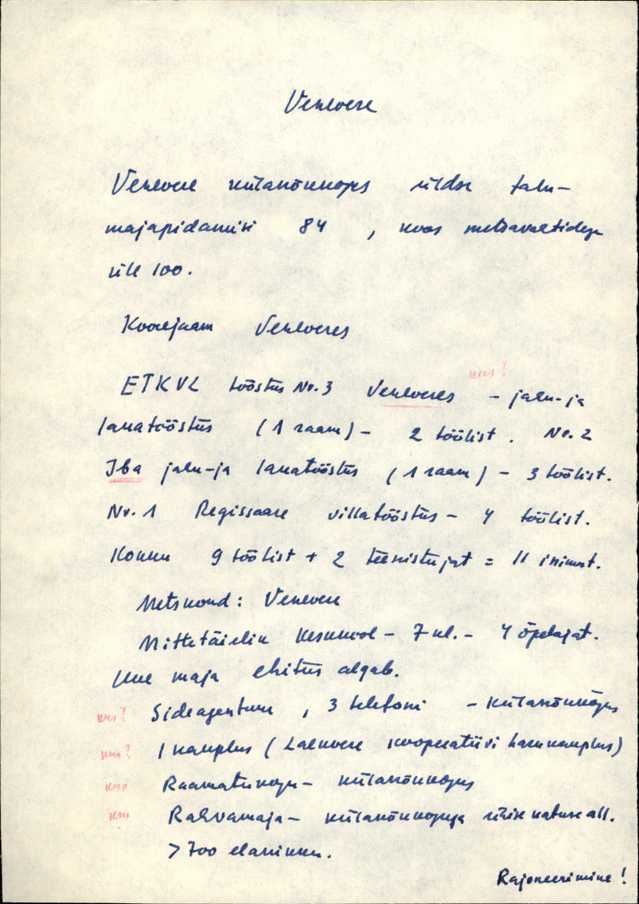 Venevere
Venevere külanõukogus üldse talu-
majapidamisi 84, koos metsavahtidega
üle 100.
Koorejaam Veneveres
kus?
ETKVL tööstus Nr. 3 Veneveres – jahu- ja
lauatööstus (1 raam) – 2 töölist. No. 2
Iba jahu- ja lauatööstus (1 raam) – 3 töölist.
Nr. 1 Regissaare villatööstus – 4 töölist.
Kokku 9 töölist + 2 teenistujat = 11 inimest.
Metskond: Venevere
Mittetäielik keskkool – 7 kl. – 4 õpetajat.
Uue maja ehitus algab.
kus? Sideagentuur, 3 telefoni – külanõukogus
kus? 1 kauplus (Laekvere kooperatiivi harukauplus)
kus Raamatukogu – külanõukogus
kus Rahvamaja – külanõukoguga ühise katuse all.
> 700 elanikku.
Rajoneerimine!